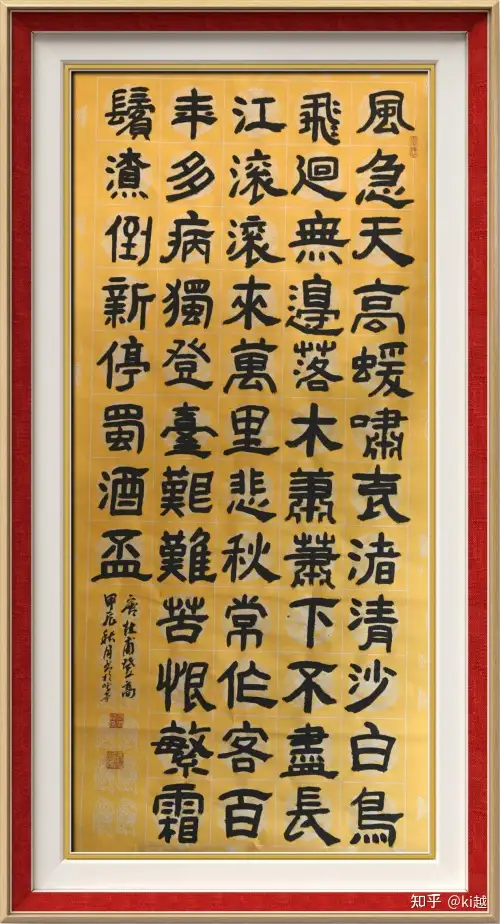 風急天高蝯嘯哀渚清沙白鳥
飛迴無邊落木蕭蕭下不盡長
江滚滚來萬里悲秋常作客百
年多病獨登臺艱難苦恨繁霜
鬢潦倒新停蜀酒盃
杜甫登高
甲辰秋月书於
知乎 @ki越